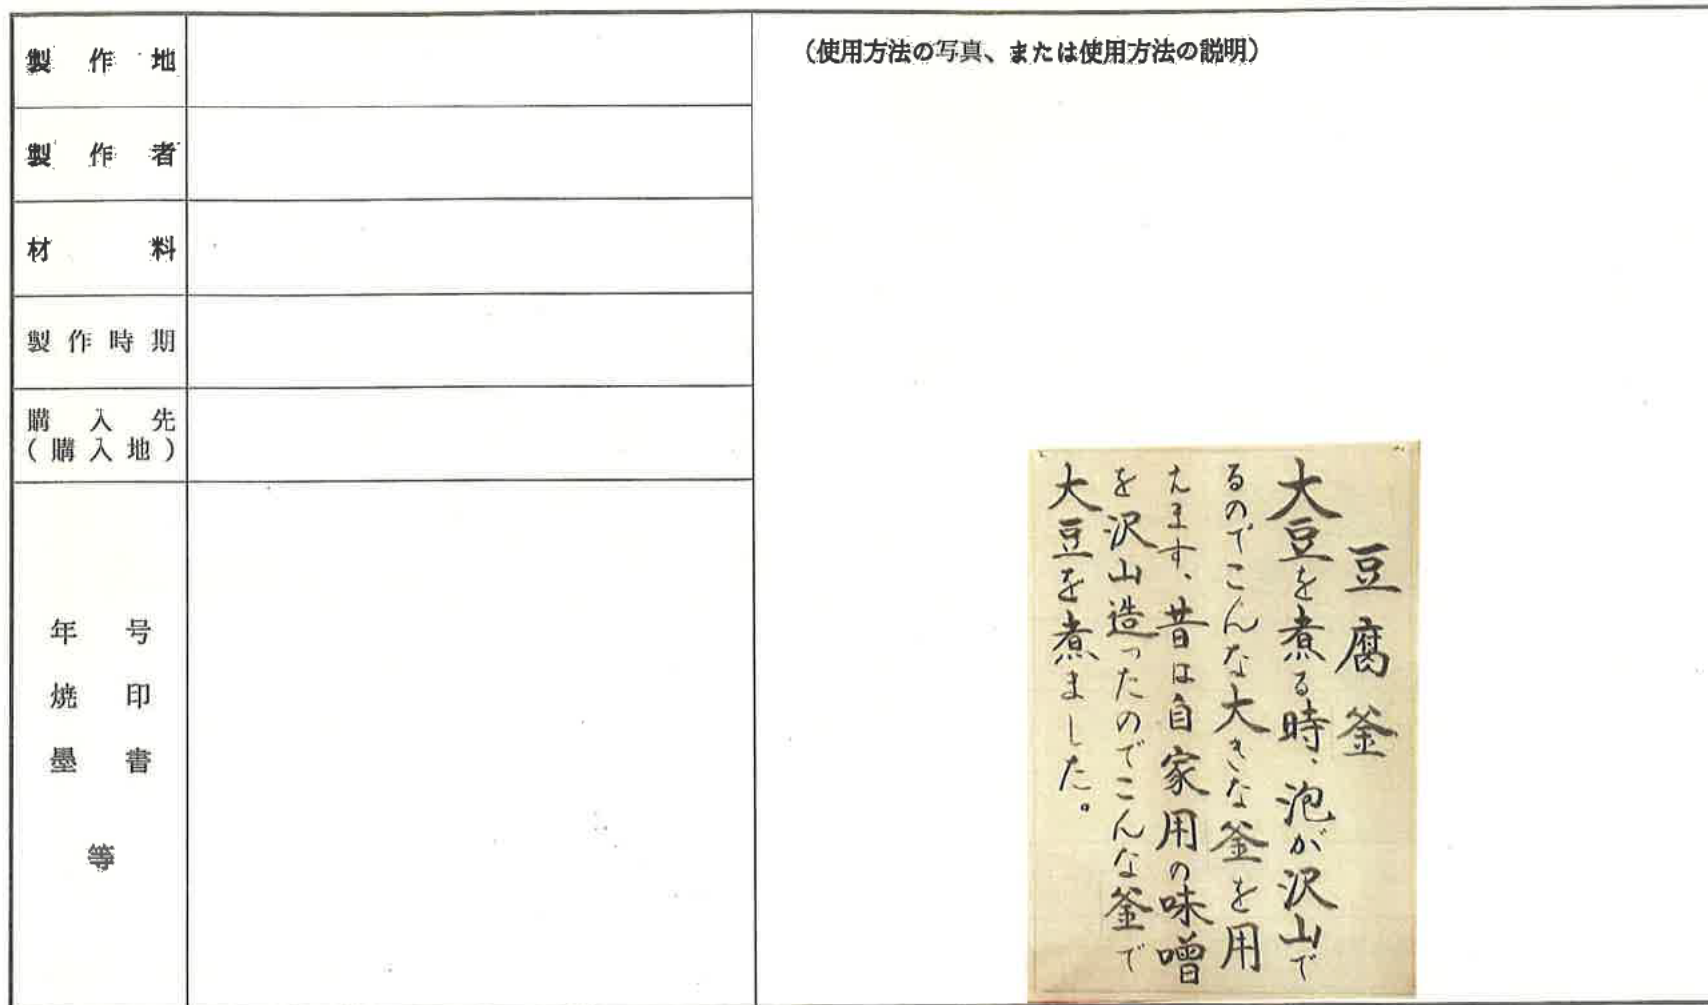 製作地
製作者
材料
製作時期
購入先
(購入地)
年号
焼印
墨書
等
(使用方法の写真、または使用方法の説明)
豆腐釜
大豆を煮る時、泡が沢山で
るのでこんな大きな釜を用
えます、昔は自家用の味噌
を沢山造ったのでこんな釜で
大豆を煮ました。